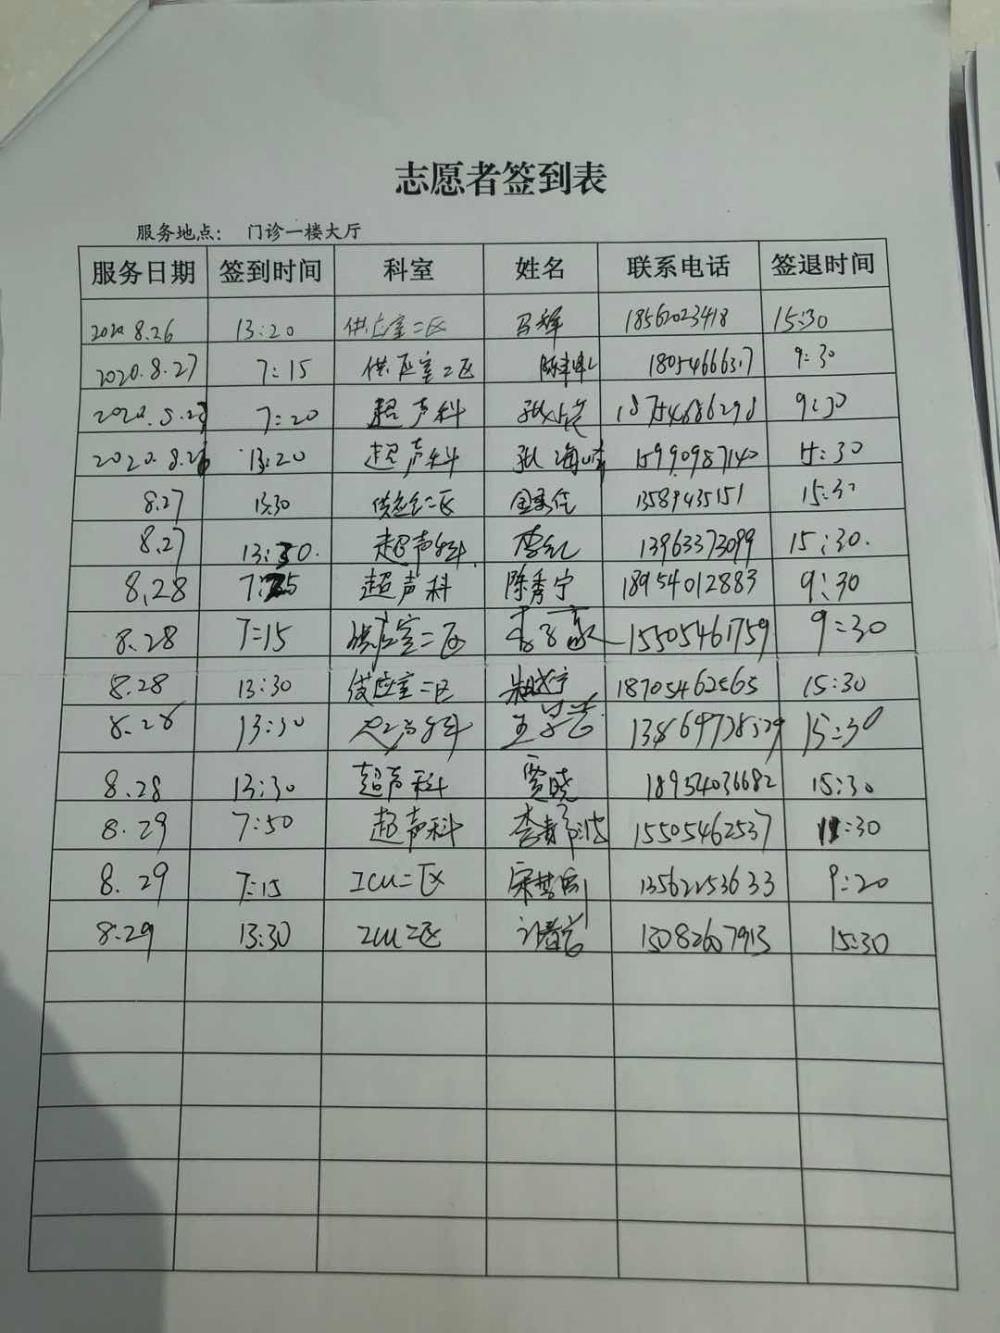 志愿者签到表
服务地点： 门诊一楼大厅
服务日期 签到时间 科室 姓名 联系电话 签退时间
2020 8.26 13:20 供应室二区 马辉 18562023418 15:30
2020.8.27 7:15 供应室二区 18054666317 9:30
7:20 超声科 18754686298 9:30
2020.8.26 13:20 超声科 15990987140 15:30
8.27 13:30 二区 13589435151 15:30
8.27 13:30. 超声科 李红 13963373099 15:30.
8.28 超声科 陈秀宁 18954012883 9:30
8.28 7:15 供应室二区 15505461759 9:30
8.28 13:30 供应室二区 18705462565 15:30
8.28 13:30 超声科 15:30
8.28 13:30 超声科 贾晓 18954036682 15:30
8.29 7:50 超声科 15505462537 11:30
8.29 7:15 ICU二区 13562253633 9:20
8.29 13:30 ICU二区 13082607913 15:30